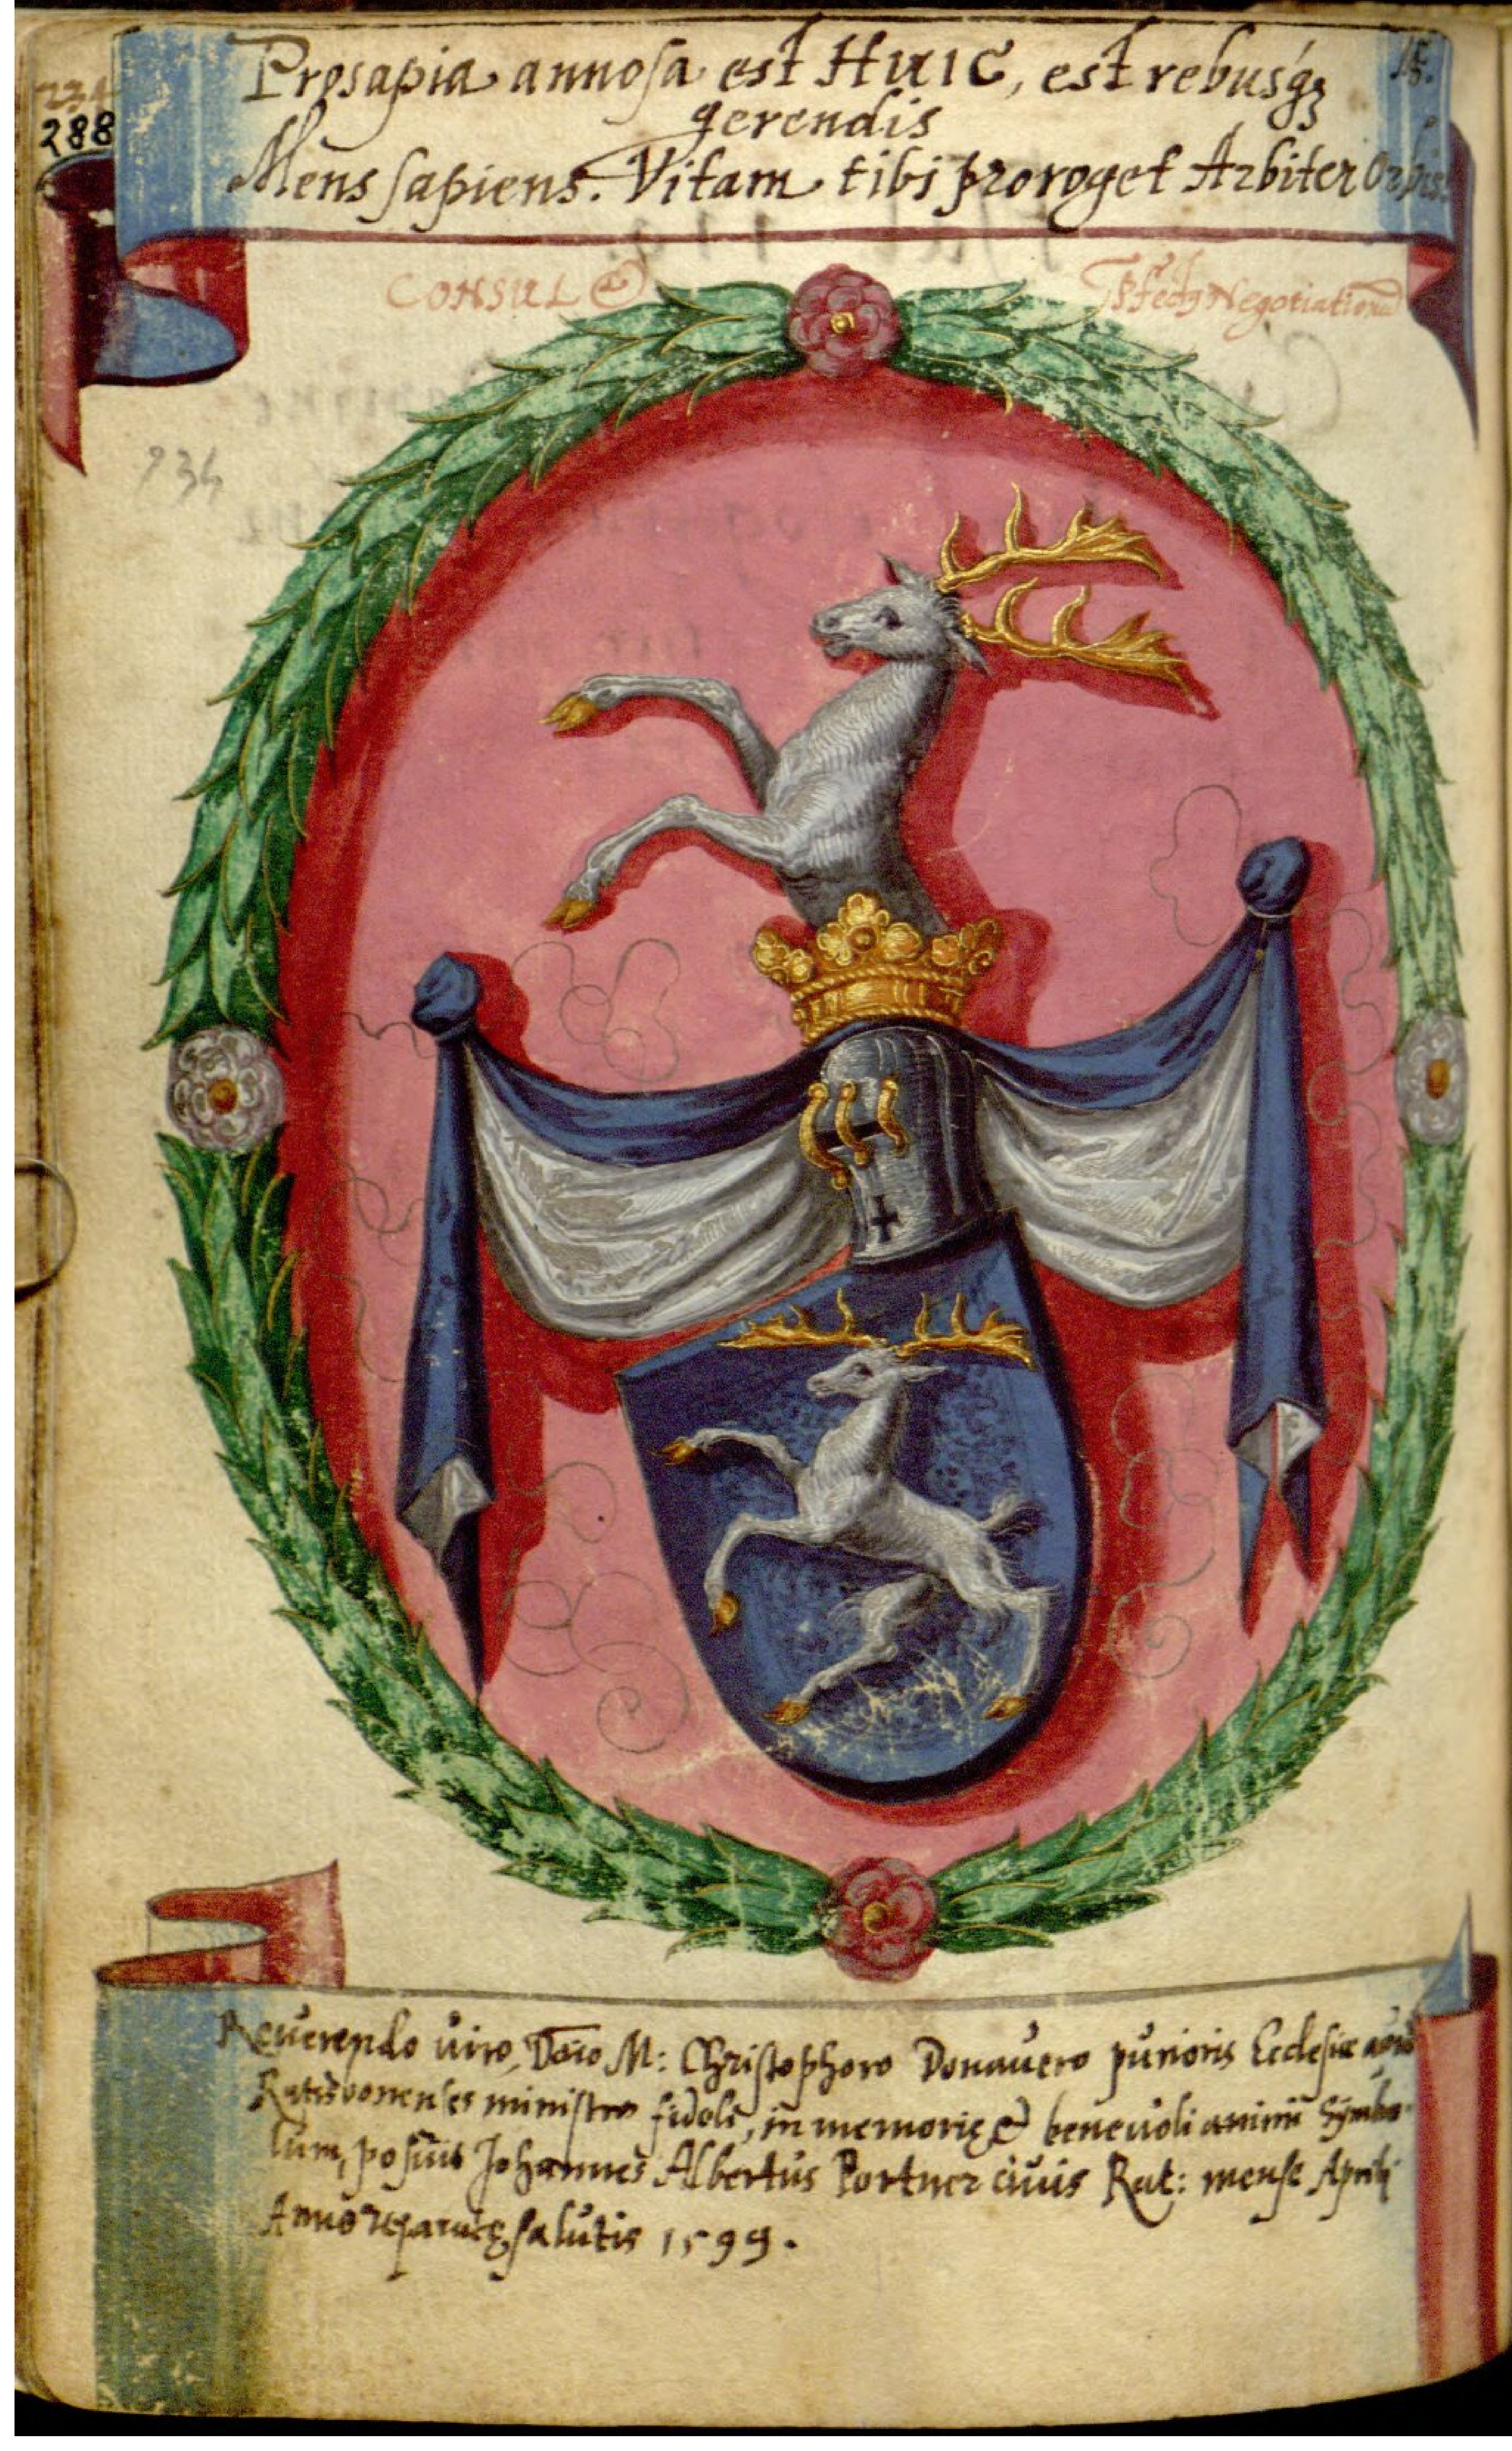 Prosapia annosa est HuIC, est rebusq́ꝫ
gerendis
Mens sapiens. Vitam tibi proroget Arbiter Orbis.
15.
234
288
CONSUL &
Pfectꝰ Negotiationū
234
Reuerendo viro, Dn̄o M: Christophoro Donauero purioris Ecclesiæ apud
Ratisbonenses ministro fideli, in memorię & beneuoli animi Symbo-
lum, posuit Johannes Albertus Portner ciuis Rat: mense Aprili
Anno reparatę salutis 1599.